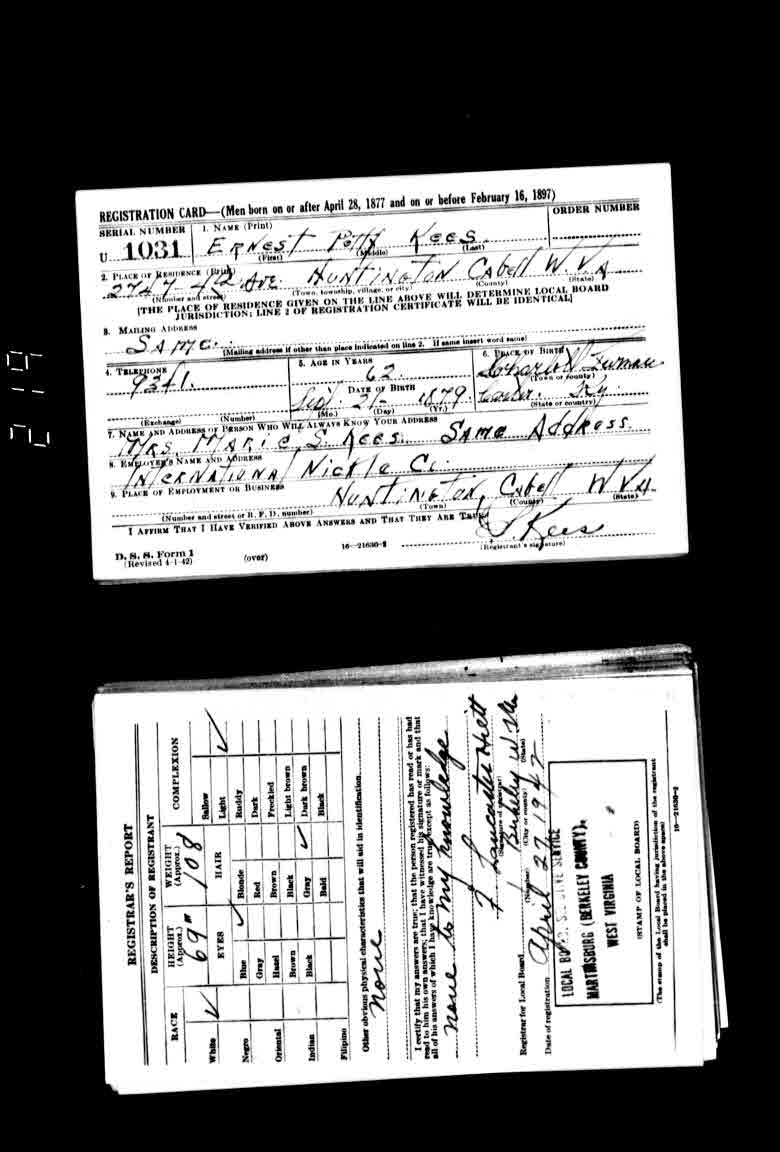 2-19
REGISTRATION CARD—(Men born on or after April 28, 1877 and on or before February 16, 1897)
SERIAL NUMBER
1. NAME (Print)
ORDER NUMBER
U 1031
ERNEST Petty Kees
(First) (Middle) (Last)
2. PLACE OF RESIDENCE (Print)
2747 4½ Ave. HUNTINGTON Cabell W. VA
(Number and street) (Town, township, village, or city) (County) (State)
[THE PLACE OF RESIDENCE GIVEN ON THE LINE ABOVE WILL DETERMINE LOCAL BOARD
JURISDICTION; LINE 2 OF REGISTRATION CERTIFICATE WILL BE IDENTICAL]
3. MAILING ADDRESS
SAME.
[Mailing address if other than place indicated on line 2. If same insert word same]
4. TELEPHONE
5. AGE IN YEARS
6. PLACE OF BIRTH
9341
62
(Town or county)
DATE OF BIRTH
21 1879 Ky.
(Exchange) (Number) (Mo.) (Day) (Yr.) (State or country)
7. NAME AND ADDRESS OF PERSON WHO WILL ALWAYS KNOW YOUR ADDRESS
MRS. MARIE S. Kees. SAME Address.
8. EMPLOYER'S NAME AND ADDRESS
INTERNATIONAL Nickle Co.
9. PLACE OF EMPLOYMENT OR BUSINESS
HUNTINGTON, Cabell W VA.
(Number and street or R. F. D. number) (Town) (County) (State)
I AFFIRM THAT I HAVE VERIFIED ABOVE ANSWERS AND THAT THEY ARE TRUE.
Kees
(Registrant's signature)
D. S. S. Form 1
(Revised 4-1-42)
(over)
16—21630-2
REGISTRAR'S REPORT
DESCRIPTION OF REGISTRANT
RACE
HEIGHT (Approx.)
WEIGHT (Approx.)
COMPLEXION
69"
108
EYES
HAIR
White ✓
Negro
Oriental
Indian
Filipino
Blue ✓
Gray
Hazel
Brown
Black
Blonde
Red
Brown
Black
Gray ✓
Bald
Sallow
Light ✓
Ruddy
Dark
Freckled
Light brown
Dark brown
Black
Other obvious physical characteristics that will aid in identification
none
I certify that my answers are true; that the person registered has read or has had
read to him his own answers; that I have witnessed his signature or mark and that
all of his answers of which I have knowledge are true, except as follows:
none to my knowledge
F Lancaster Hiett
(Signature of registrar)
Registrar for Local Board 1 Berkeley W Va
(Number) (City or county) (State)
Date of registration April 27 1942
LOCAL BOARD
MARTINSBURG (BERKELEY COUNTY)
WEST VIRGINIA
(STAMP OF LOCAL BOARD)
(The stamp of the Local Board having jurisdiction of the registrant
shall be placed in the above space)
16—21630-2